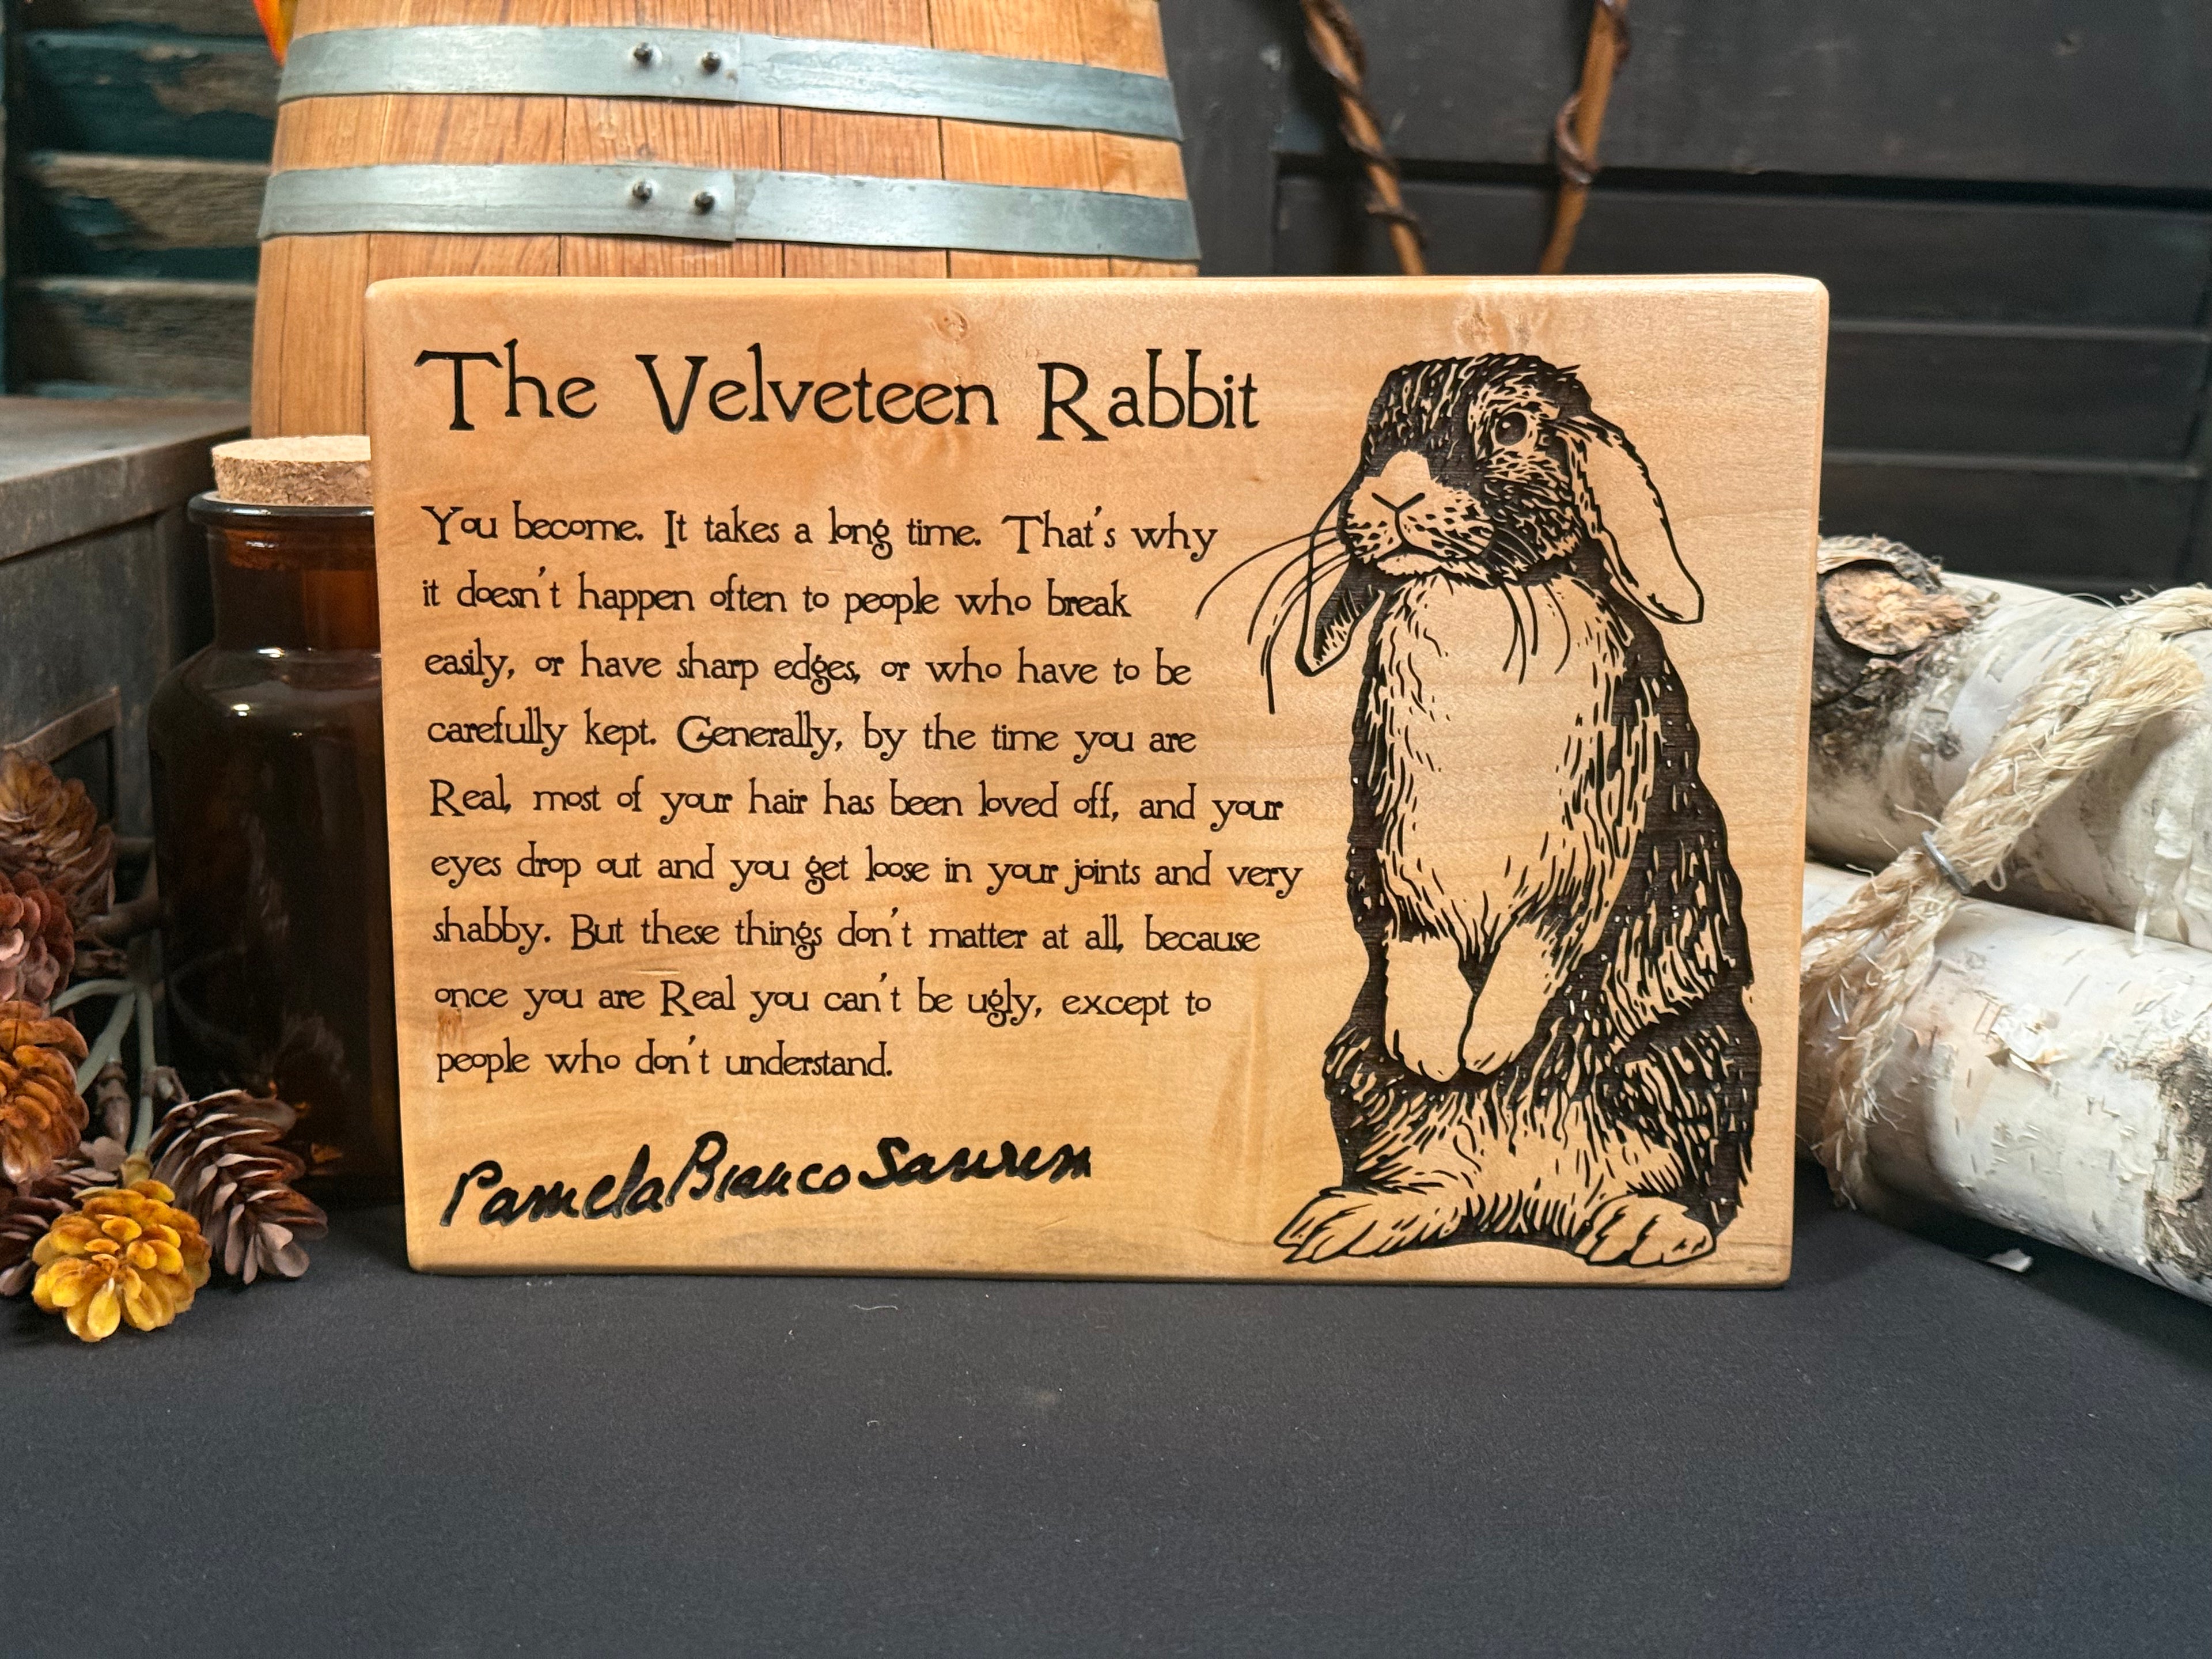 The Velveteen Rabbit
You become. It takes a long time. That's why
it doesn't happen often to people who break
easily, or have sharp edges, or who have to be
carefully kept. Generally, by the time you are
Real, most of your hair has been loved off, and your
eyes drop out and you get loose in your joints and very
shabby. But these things don't matter at all, because
once you are Real you can't be ugly, except to
people who don't understand.
Pamela Bianco